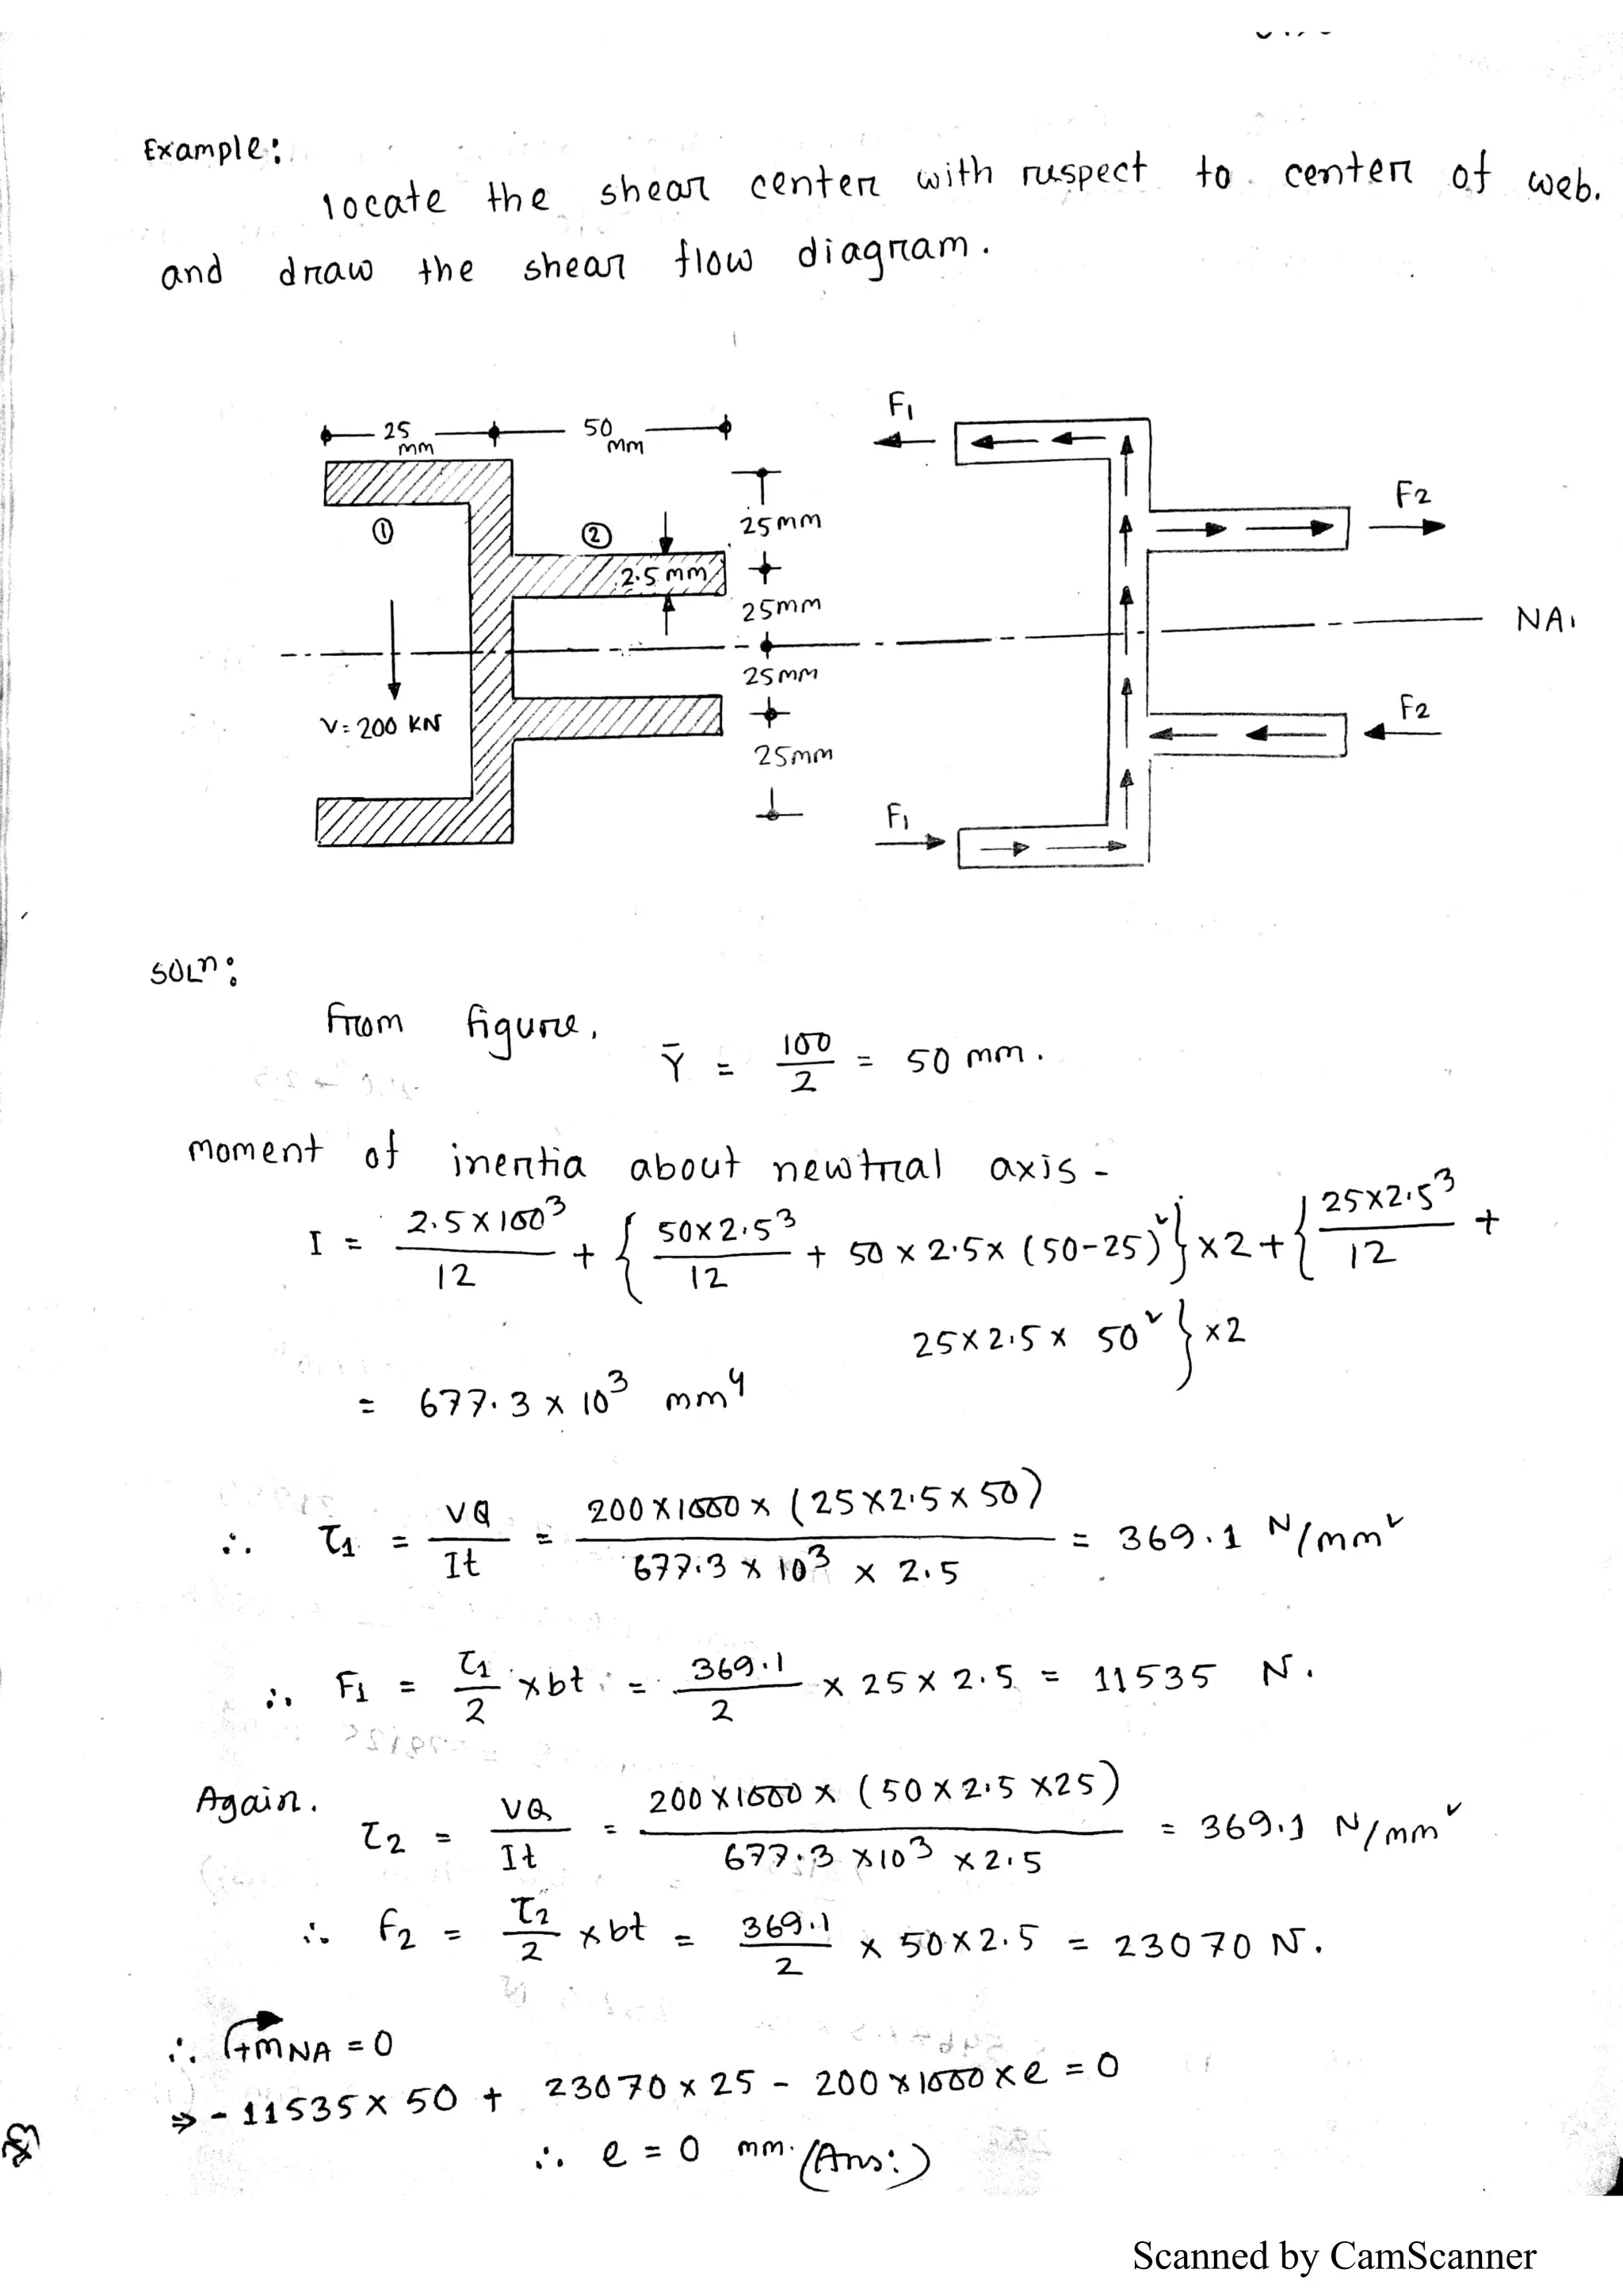 Example:
locate the shear center with respect to center of web.
and draw the shear flow diagram.
25 mm
50 mm
F1
F2
①
②
25mm
2.5 mm
25mm
NA.
25mm
V=200 KN
F2
25mm
F1
SOLn:
From figure,
Ȳ = 100/2 = 50 mm.
moment of inertia about newtral axis -
I = 2.5×100³/12 + {50×2.5³/12 + 50×2.5×(50-25)²}×2 + {25×2.5³/12 +
25×2.5×50²}×2
= 677.3×10³ mm⁴
∴ τ1 = VQ/It = 200×1000×(25×2.5×50)/677.3×10³×2.5 = 369.1 N/mm²
∴ F1 = τ1/2 ×bt = 369.1/2 × 25×2.5 = 11535 N.
Again. τ2 = VQ/It = 200×1000×(50×2.5×25)/677.3×10³×2.5 = 369.1 N/mm²
∴ F2 = τ2/2 ×bt = 369.1/2 × 50×2.5 = 23070 N.
∴ +mNA = 0
⇒ -11535×50 + 23070×25 - 200×1000×e = 0
∴ e = 0 mm. (Ans:)
Scanned by CamScanner